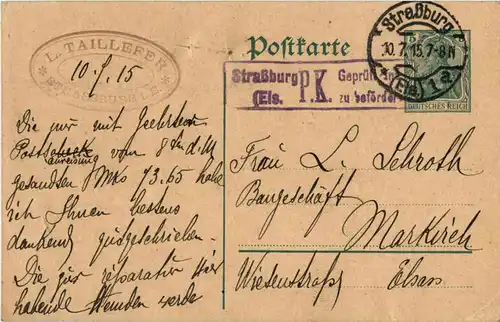 L. TAILLEFER
STRASSBURG i. E.
10.7.15
Postkarte
Straßburg
10.7.15.7-8N
(Els) 1 a.
DEUTSCHES REICH
Straßburg P.K. Geprüft
(Els. zu befördern
Die mir mit geehrten
Postscheck
anweisung vom 8ten d. M
gesandten Mks 73.65 habe
ich Ihnen bestens
dankend gutgeschrieben.
Die zur reparatur hier
habende Hemden werde
Frau L. Schroth
Baugeschäft
Markirch
Wiesenstraße Elsass